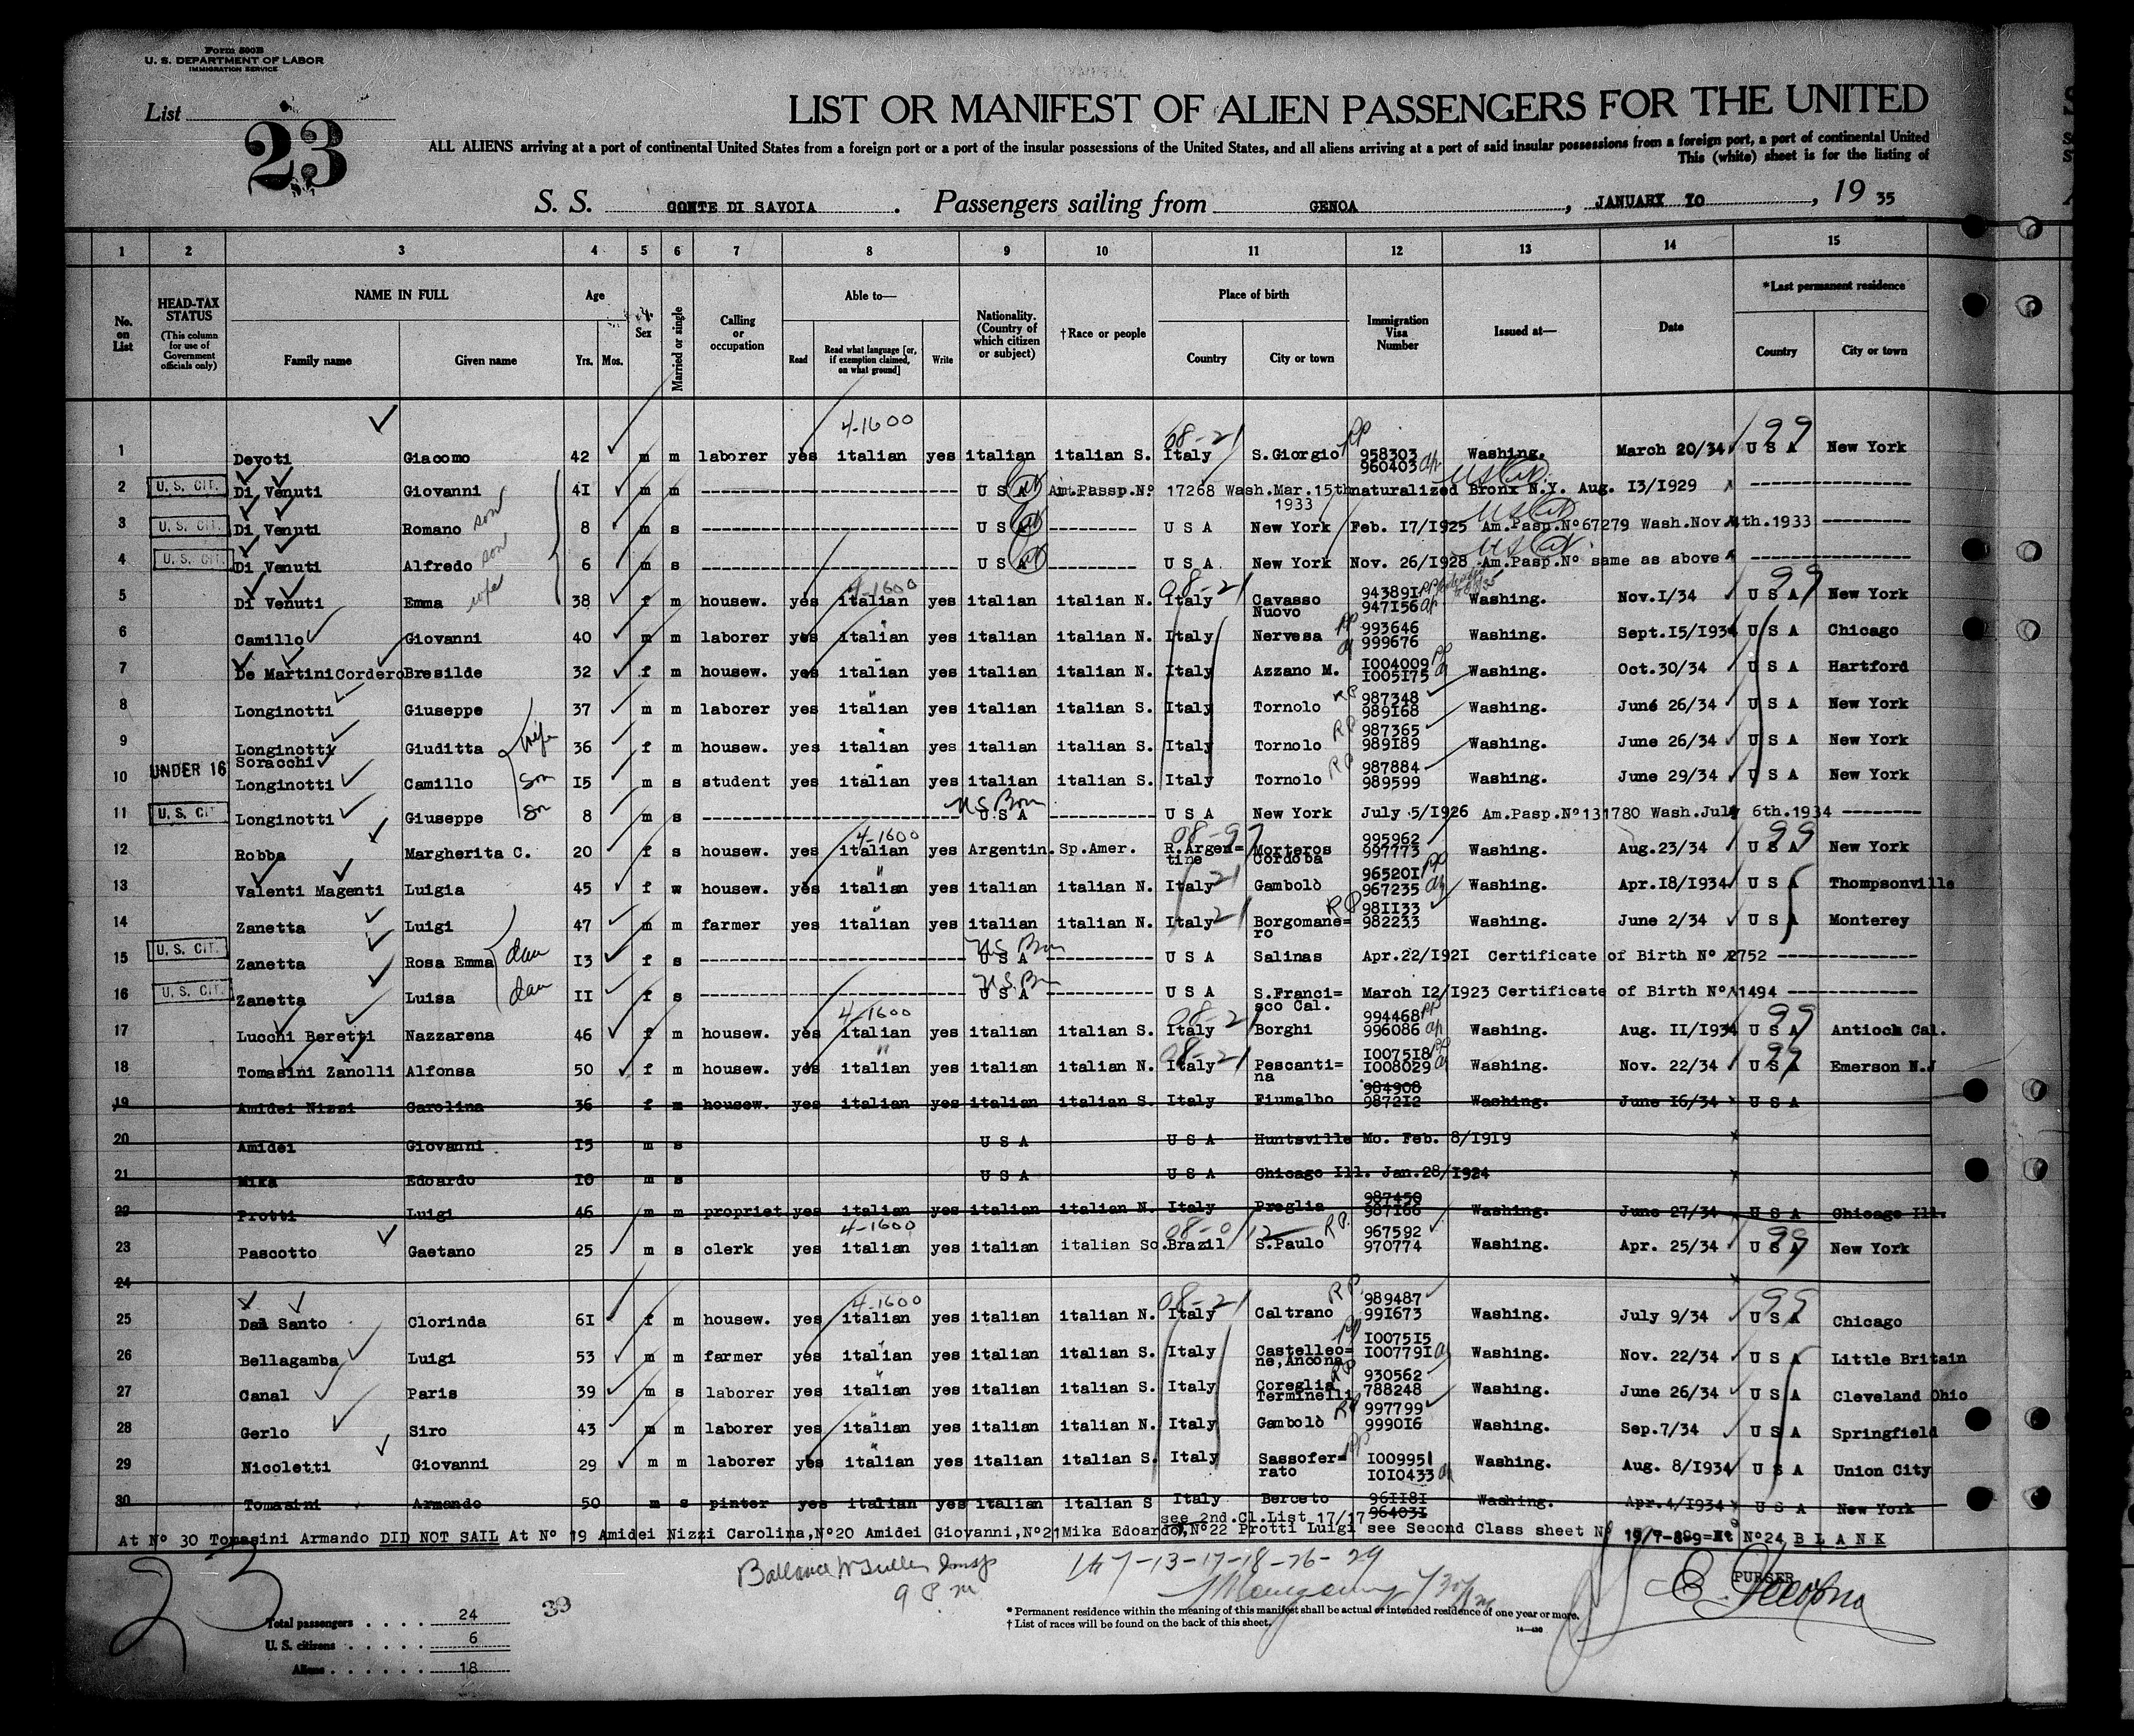 Form 500B
U. S. DEPARTMENT OF LABOR
IMMIGRATION SERVICE
List
23
LIST OR MANIFEST OF ALIEN PASSENGERS FOR THE UNITED
ALL ALIENS arriving at a port of continental United States from a foreign port or a port of the insular possessions of the United States, and all aliens arriving at a port of said insular possessions from a foreign port, a port of continental United
This (white) sheet is for the listing of
S. S. CONTE DI SAVOIA . Passengers sailing from GENOA , JANUARY 10 , 19 35
1 2 3 4 5 6 7 8 9 10 11 12 13 14 15
No. on List
HEAD-TAX STATUS (This column for use of Government officials only)
NAME IN FULL Family name Given name
Age Yrs. Mos.
Sex
Married or single
Calling or occupation
Able to— Read Read what language [or, if exemption claimed, on what ground] Write
Nationality. (Country of which citizen or subject)
†Race or people
Place of birth Country City or town
Immigration Visa Number
Issued at—
Date
*Last permanent residence Country City or town
4-1600 08-21 RP 99
1 Devoti Giacomo 42 m m laborer yes italian yes italian italian S. Italy S.Giorgio 958303 960403 Washing. March 20/34 U S A New York
2 U. S. CIT. Di Venuti Giovanni 41 m m U S A Am.Passp.Nº 17268 Wash.Mar.15th 1933 naturalized Bronx N.Y. Aug. 13/1929
3 U. S. CIT. Di Venuti Romano son 8 m s U S A U S A New York Feb. 17/1925 Am.Pasp.Nº67279 Wash.Nov.4th.1933
4 U. S. CIT. Di Venuti Alfredo son 6 m s U S A U S A New York Nov. 26/1928 Am.Pasp.Nº same as above
5 Di Venuti Emma wife 38 f m housew. yes italian yes italian italian N. Italy Cavasso Nuovo 943891 947156 Washing. Nov.1/34 U S A New York
6 Camillo Giovanni 40 m m laborer yes italian yes italian italian N. Italy Nervesa 993646 999676 Washing. Sept.15/1934 U S A Chicago
7 De Martini Cordero Bresilde 32 f m housew. yes italian yes italian italian N. Italy Azzano M. 1004009 1005175 Washing. Oct.30/34 U S A Hartford
8 Longinotti Giuseppe 37 m m laborer yes italian yes italian italian S. Italy Tornolo 987348 989168 Washing. June 26/34 U S A New York
9 Longinotti Soracchi Giuditta wife 36 f m housew. yes italian yes italian italian S. Italy Tornolo 987365 989189 Washing. June 26/34 U S A New York
10 UNDER 16 Longinotti Camillo son 15 m s student yes italian yes italian italian S. Italy Tornolo 987884 989599 Washing. June 29/34 U S A New York
11 U. S. CIT. Longinotti Giuseppe son 8 m s US Born U S A U S A New York July 5/1926 Am.Pasp.Nº131780 Wash.July 6th.1934
12 Robba Margherita C. 20 f s housew. yes italian yes Argentin. Sp.Amer. R.Argen=tine Morteros Cordoba 995962 997773 Washing. Aug.23/34 U S A New York
13 Valenti Magenti Luigia 45 f w housew. yes italian yes italian italian N. Italy Gambolò 965201 967235 Washing. Apr.18/1934 U S A Thompsonville
14 Zanetta Luigi 47 m m farmer yes italian yes italian italian N. Italy Borgomane=ro 981133 982233 Washing. June 2/34 U S A Monterey
15 U. S. CIT. Zanetta Rosa Emma dau 13 f s US Born U S A U S A Salinas Apr.22/1921 Certificate of Birth Nº 2752
16 U. S. CIT. Zanetta Luisa dau 11 f s US Born U S A U S A S.Franci=sco Cal. March 12/1923 Certificate of Birth Nº 1494
17 Lucchi Beretti Nazzarena 46 f m housew. yes italian yes italian italian S. Italy Borghi 994468 996086 Washing. Aug. 11/1934 U S A Antioch Cal.
18 Tomasini Zanolli Alfonsa 50 f m housew. yes italian yes italian italian N. Italy Pescanti=na 1007518 1008029 Washing. Nov. 22/34 U S A Emerson N.J
19 Amidei Nizzi Carolina 36 f m housew. yes italian yes italian italian S. Italy Fiumalbo 984908 987212 Washing. June 16/34 U S A
20 Amidei Giovanni 15 m s U S A U S A Huntsville Mo. Feb. 8/1919
21 Mika Edoardo 10 m s U S A U S A Chicago Ill. Jan.28/1924
22 Protti Luigi 46 m m propriet. yes italian yes italian italian N. Italy Preglia 987450 987166 Washing. June 27/34 U S A Chicago Ill.
23 Pascotto Gaetano 25 m s clerk yes italian yes italian italian So. Brazil S.Paulo 967592 970774 Washing. Apr. 25/34 U S A New York
24
25 Dal Santo Clorinda 61 f m housew. yes italian yes italian italian N. Italy Caltrano 989487 991673 Washing. July 9/34 U S A Chicago
26 Bellagamba Luigi 53 m m farmer yes italian yes italian italian S. Italy Castelleo=ne,Ancona 1007515 1007791 Washing. Nov. 22/34 U S A Little Britain
27 Canal Paris 39 m s laborer yes italian yes italian italian S. Italy Coreglia Terminelli 930562 788248 Washing. June 26/34 U S A Cleveland Ohio
28 Gerlo Siro 43 m m laborer yes italian yes italian italian N. Italy Gambolò 997799 999016 Washing. Sep.7/34 U S A Springfield
29 Nicoletti Giovanni 29 m m laborer yes italian yes italian italian S. Italy Sassofer=rato 1009951 1010433 Washing. Aug. 8/1934 U S A Union City
30 Tomasini Armando 50 m s pinter yes italian yes italian italian S Italy Berceto 961181 964031 Washing. Apr.4/1934 U S A New York
see 2nd.Cl.List 17/17
At Nº 30 Tomasini Armando DID NOT SAIL At Nº 19 Amidei Nizzi Carolina,Nº20 Amidei Giovanni,Nº21Mika Edoardo,Nº22 Protti Luigi see Second Class sheet Nº Nº24 B L A N K
23
147-13-17-18-26-29
PURSER
Total passengers . . . . 24
39
U. S. citizens . . . . . 6
Aliens . . . . . . 18
* Permanent residence within the meaning of this manifest shall be actual or intended residence of one year or more.
† List of races will be found on the back of this sheet.